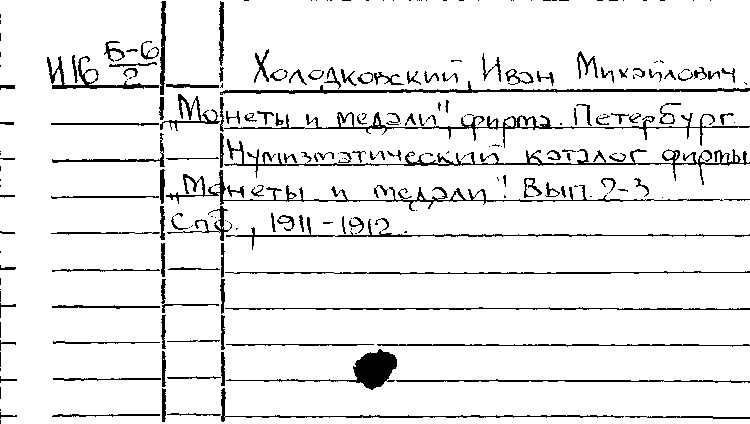 И16 Б-6/2 Холодковский, Иван Михайлович.
„Монеты и медали", фирма. Петербург
Нумизматический каталог фирмы
„Монеты и медали". Вып. 2-3
Спб., 1911-1912.